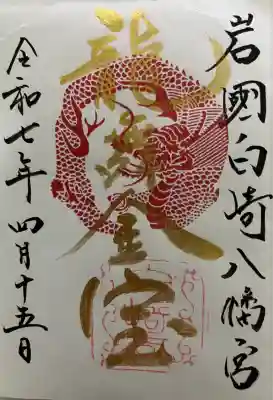 岩國白崎八幡宮
龍 金宝
令和七年 四月十五日